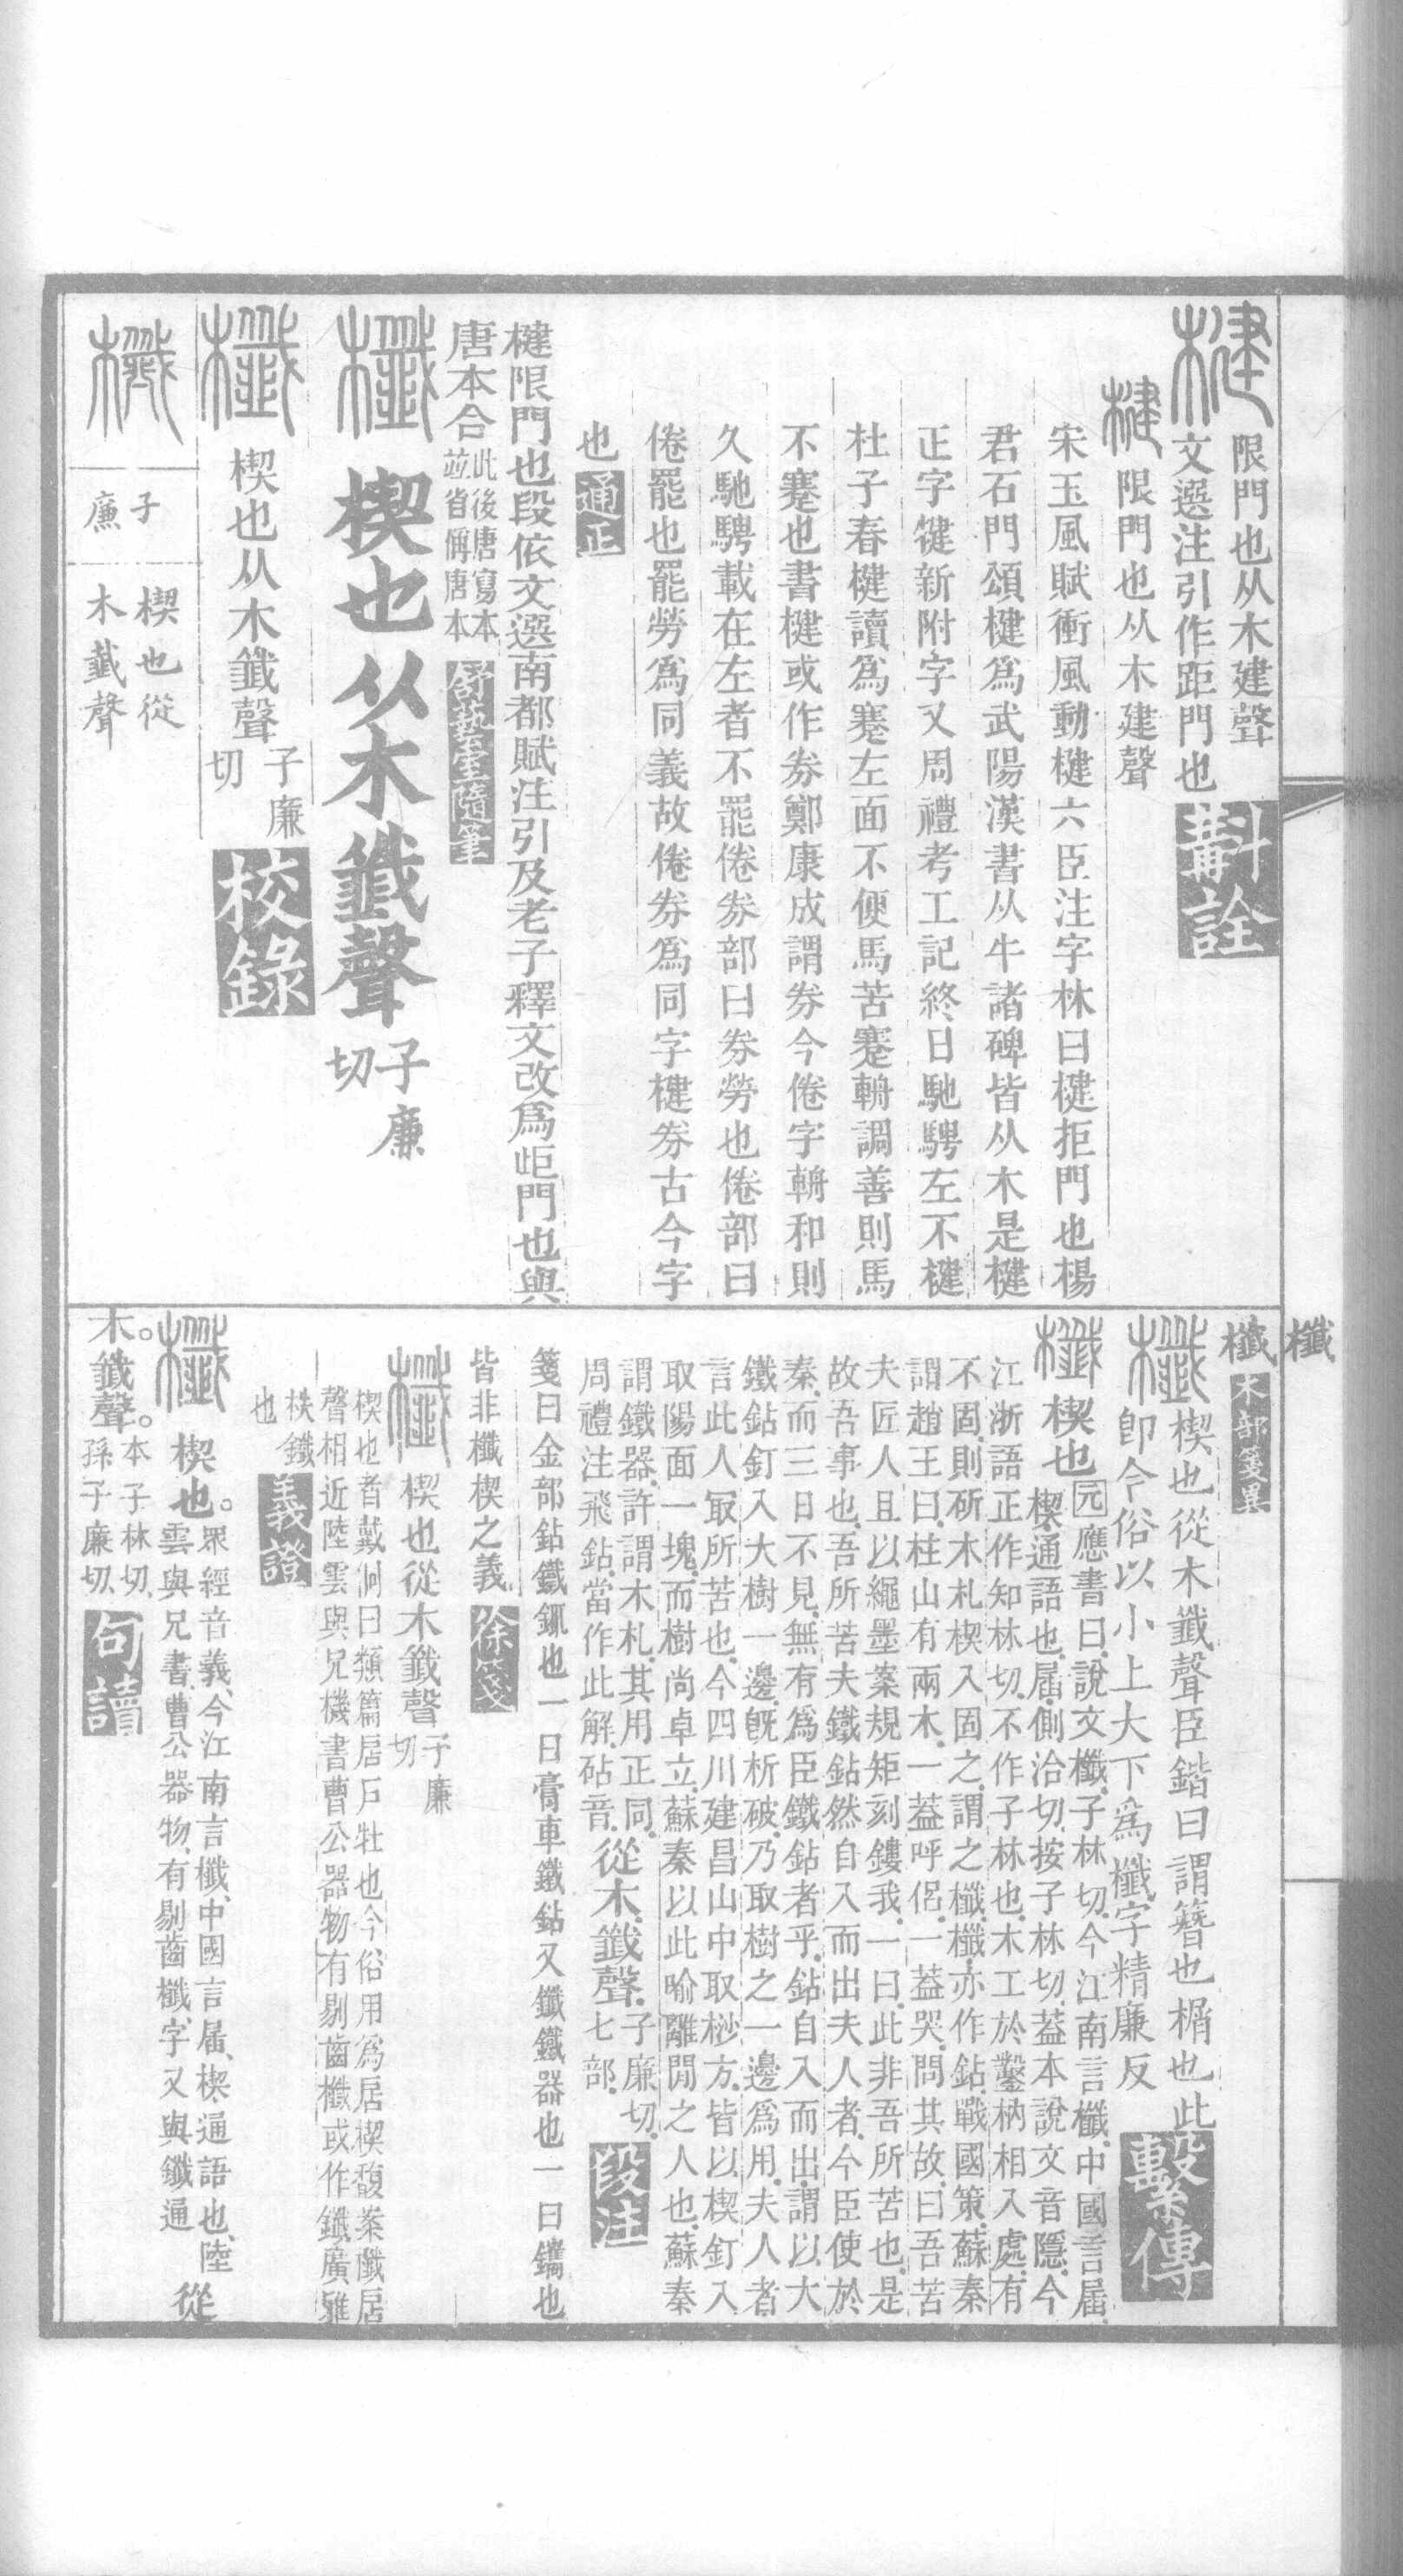 限門也从木建聲
文選注引作距門也
斠詮
楗
限門也从木建聲
宋玉風賦衝風動楗六臣注字林曰楗拒門也楊
君石門頌楗爲武陽漢書从牛諸碑皆从木是楗
正字犍新附字又周禮考工記終日馳騁左不楗
杜子春楗讀爲蹇左面不便馬苦蹇輈調善則馬
不蹇也書楗或作券鄭康成謂券今倦字輈和則
久馳騁載在左者不罷倦券部曰券勞也倦部曰
倦罷也罷勞爲同義故倦券爲同字楗券古今字
也
通正
楗限門也段依文選南都賦注引及老子釋文改爲歫門也與
唐本合
此後唐寫本
竝省偁唐本
舒藝室隨筆
櫼
楔也从木韱聲
子廉
切
櫼
楔也从木韱聲
子廉
切
校錄
櫼
子
廉
楔也從
木韱聲
櫼
櫼
木部箋異
櫼
楔也從木韱聲臣鍇曰謂簪也楈也此
卽今俗以小上大下爲櫼字精廉反
繫傳
櫼
楔也
元應書曰說文櫼子林切今江南言櫼中國言屆
楔通語也屆側洽切按子林切葢本說文音隱今
江浙語正作知林切不作子林也木工於鑿枘相入處有
不固則斫木札楔入固之謂之櫼櫼亦作鈷戰國策蘇秦
謂趙王曰柱山有兩木一葢呼侶一葢哭問其故曰吾苦
夫匠人且以繩墨案規矩刻鏤我一曰此非吾所苦也是
故吾事也吾所苦夫鐵鈷然自入而出夫人者今臣使於
秦而三日不見無有爲臣鐵鈷者乎鈷自入而出謂以大
鐵鈷釘入大樹一邊旣析破乃取樹之一邊爲用夫人者
言此人㝡所苦也今四川建昌山中取桫方皆以楔釘入
取陽面一塊而樹尚卓立蘇秦以此喻離閒之人也蘇秦
謂鐵器許謂木札其用正同
周禮注飛鈷當作此解砧音
從木韱聲
子廉切
七部
段注
箋曰金部鈷鐵鉆也一曰膏車鐵鈷又鑯鐵器也一曰鐫也
皆非櫼楔之義
徐箋
櫼
楔也從木韱聲
子廉
切
楔也者戴侗曰類篇㞐戶牡也今俗用爲㞐楔馥案櫼㞐
聲相近陸雲與兄機書曹公器物有剔齒櫼或作鑯廣雅
栓鑯
也
義證
櫼
楔也。
眾經音義今江南言櫼中國言屆楔通語也陸
雲與兄書曹公器物有剔齒櫼字又與鑯通
從
木。韱聲。
本子林切
孫子廉切
句讀